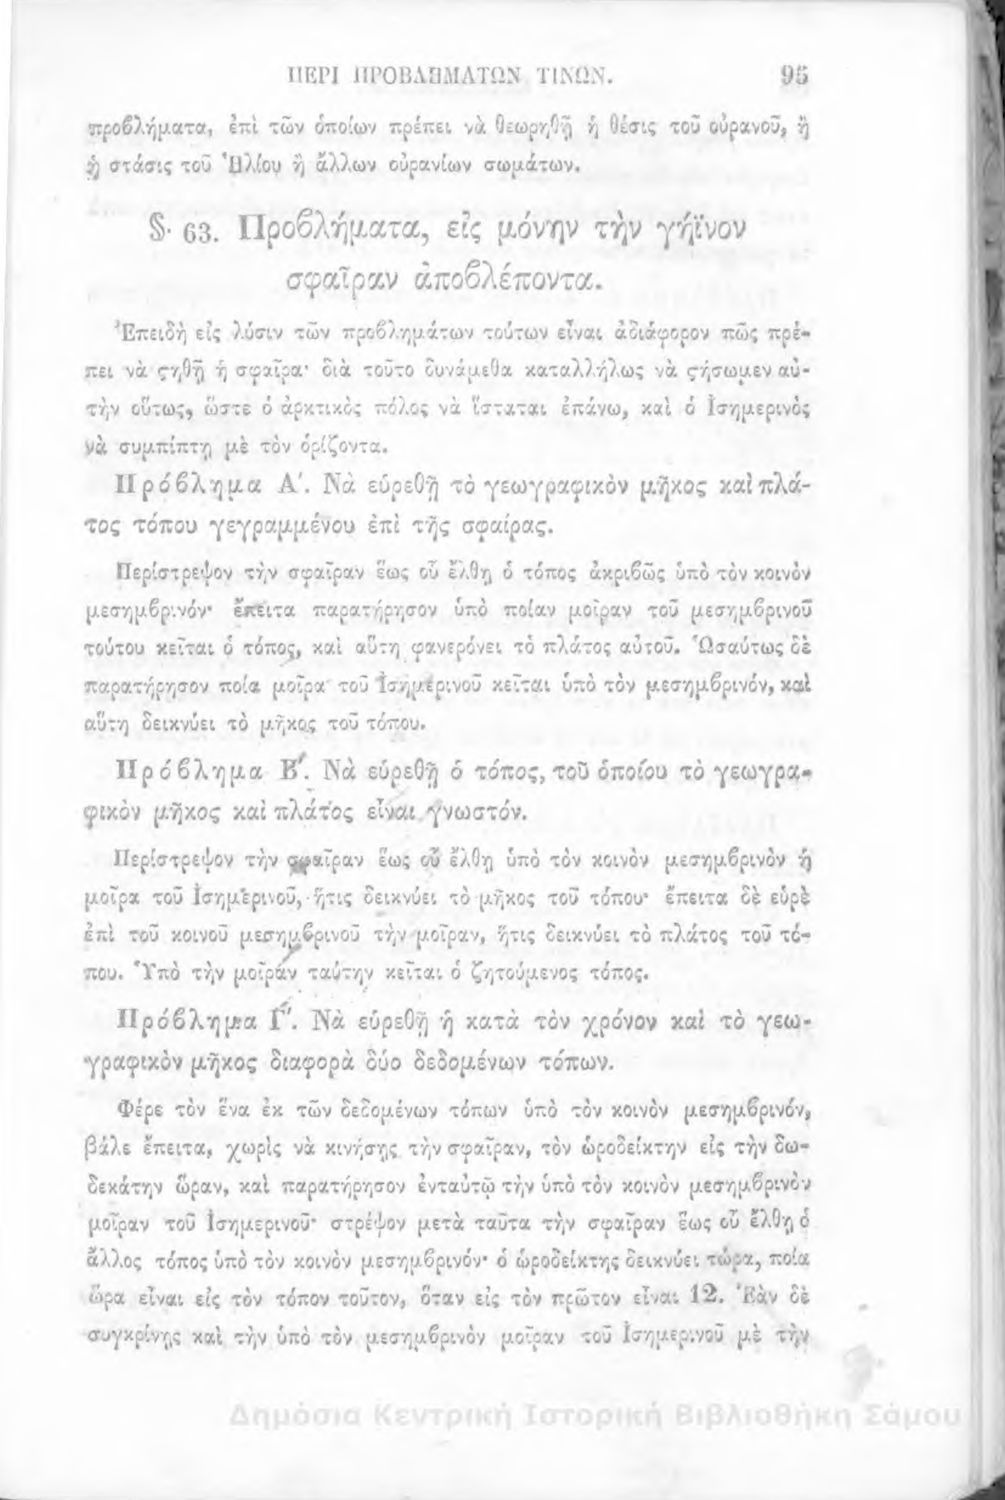 ΠΕΡΙ ΠΡΟΒΛΗΜΑΤΩΝ ΤΙΝΩΝ. 95
προβλήματα, ἐπὶ τῶν ὁποίων πρέπει νὰ θεωρηθῇ ἡ θέσις τοῦ οὐρανοῦ, ἢ
ἡ στάσις τοῦ Ἡλίου ἢ ἄλλων οὐρανίων σωμάτων.
§. 63. Προβλήματα, εἰς μόνην τὴν γήϊνον
σφαῖραν ἀποβλέποντα.
Ἐπειδὴ εἰς λύσιν τῶν προβλημάτων τούτων εἶναι ἀδιάφορον πῶς πρέ-
πει νὰ ϛηθῇ ἡ σφαῖρα· διὰ τοῦτο δυνάμεθα καταλλήλως νὰ ϛήσωμεν αὐ-
τὴν οὕτως, ὥστε ὁ ἀρκτικὸς πόλος νὰ ἵσταται ἐπάνω, καὶ ὁ Ἰσημερινὸς
νὰ συμπίπτῃ μὲ τὸν ὁρίζοντα.
Πρόβλημα Α΄. Νὰ εὑρεθῇ τὸ γεωγραφικὸν μῆκος καὶ πλά-
τος τόπου γεγραμμένου ἐπὶ τῆς σφαίρας.
Περίστρεψον τὴν σφαῖραν ἕως οὗ ἔλθῃ ὁ τόπος ἀκριβῶς ὑπὸ τὸν κοινὸν
μεσημβρινόν· ἔπειτα παρατήρησον ὑπὸ ποίαν μοῖραν τοῦ μεσημβρινοῦ
τούτου κεῖται ὁ τόπος, καὶ αὕτη φανερόνει τὸ πλάτος αὐτοῦ. Ὡσαύτως δὲ
παρατήρησον ποία μοῖρα τοῦ Ἰσημερινοῦ κεῖται ὑπὸ τὸν μεσημβρινόν, καὶ
αὕτη δεικνύει τὸ μῆκος τοῦ τόπου.
Πρόβλημα Β΄. Νὰ εὑρεθῇ ὁ τόπος, τοῦ ὁποίου τὸ γεωγρα-
φικὸν μῆκος καὶ πλάτος εἶναι γνωστόν.
Περίστρεψον τὴν σφαῖραν ἕως οὗ ἔλθῃ ὑπὸ τὸν κοινὸν μεσημβρινὸν ἡ
μοῖρα τοῦ Ἰσημερινοῦ, ἥτις δεικνύει τὸ μῆκος τοῦ τόπου· ἔπειτα δὲ εὑρὲ
ἐπὶ τοῦ κοινοῦ μεσημβρινοῦ τὴν μοῖραν, ἥτις δεικνύει τὸ πλάτος τοῦ τό-
που. Ὑπὸ τὴν μοῖραν ταύτην κεῖται ὁ ζητούμενος τόπος.
Πρόβλημα Γ΄. Νὰ εὑρεθῇ ἡ κατὰ τὸν χρόνον καὶ τὸ γεω-
γραφικὸν μῆκος διαφορὰ δύο δεδομένων τόπων.
Φέρε τὸν ἕνα ἐκ τῶν δεδομένων τόπων ὑπὸ τὸν κοινὸν μεσημβρινόν,
βάλε ἔπειτα, χωρὶς νὰ κινήσῃς τὴν σφαῖραν, τὸν ὡροδείκτην εἰς τὴν δω-
δεκάτην ὥραν, καὶ παρατήρησον ἐνταὐτῷ τὴν ὑπὸ τὸν κοινὸν μεσημβρινὸν
μοῖραν τοῦ Ἰσημερινοῦ· στρέψον μετὰ ταῦτα τὴν σφαῖραν ἕως οὗ ἔλθῃ ὁ
ἄλλος τόπος ὑπὸ τὸν κοινὸν μεσημβρινόν· ὁ ὡροδείκτης δεικνύει τώρα, ποία
ὥρα εἶναι εἰς τὸν τόπον τοῦτον, ὅταν εἰς τὸν πρῶτον εἶναι 12. Ἐὰν δὲ
συγκρίνῃς καὶ τὴν ὑπὸ τὸν μεσημβρινὸν μοῖραν τοῦ Ἰσημερινοῦ μὲ τὴν
Δημόσια Κεντρική Ιστορική Βιβλιοθήκη Σάμου